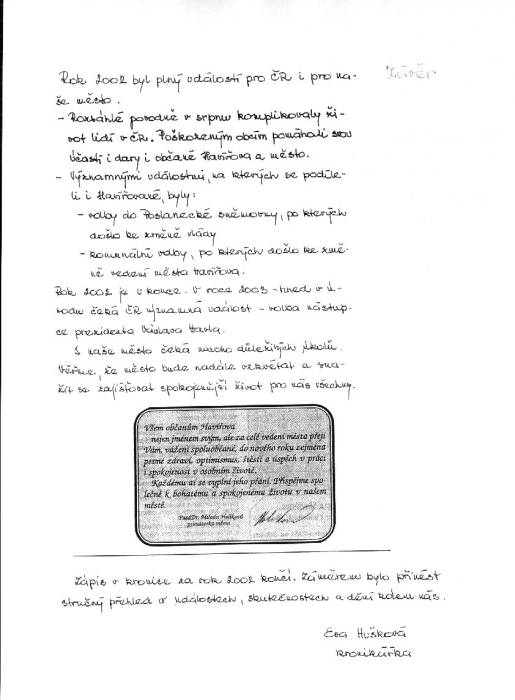 Rok 2002 byl plný událostí pro ČR i pro na-
še město.
Závěr
- Rozsáhlé povodně v srpnu komplikovaly ži-
vot lidí v ČR. Poškozeným obcím pomáhali svou
účastí i dary i občané Havířova a město.
- Významnými událostmi, na kterých se podíle-
li i Havířované, byly:
- volby do Poslanecké sněmovny, po kterých
došlo ke změně vlády
- komunální volby, po kterých došlo ke změ-
ně vedení města Havířova.
Rok 2002 je v konce. V roce 2003 - hned v ú-
vodu čeká ČR významná událost - volba nástup-
ce prezidenta Václava Havla.
I naše město čeká mnoho důležitých úkolů.
Věřme, že město bude nadále vzkvétat a sna-
žit se zajišťovat spokojenější život pro nás všechny.
Všem občanům Havířova
nejen jménem svým, ale za celé vedení města přeji
Vám, vážení spoluobčané, do nového roku zejména
pevné zdraví, optimismus, štěstí a úspěch v práci
i spokojenost v osobním životě.
Každému ať se vyplní jeho přání. Přispějme spo-
lečně k bohatému a spokojenému životu v našem
městě.
PaedDr. Milada Halíková
primátorka města
Zápis v kronice za rok 2002 končí. Záměrem bylo přinést
stručný přehled o událostech, skutečnostech a dění kolem nás.
Eva Hušková
kronikářka